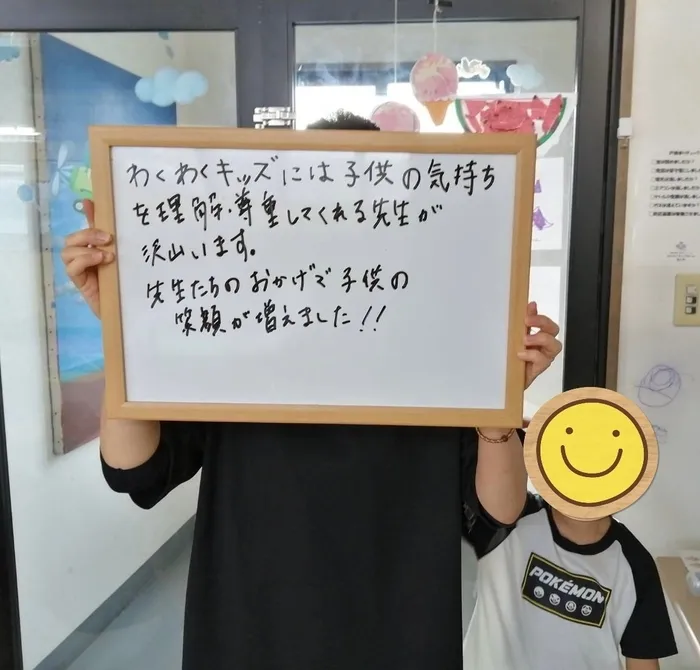 わくわくキッズには子供の気持ち
を理解・尊重してくれる先生が
沢山います。
先生たちのおかげで子供の
笑顔が増えました!!
POKÉMON